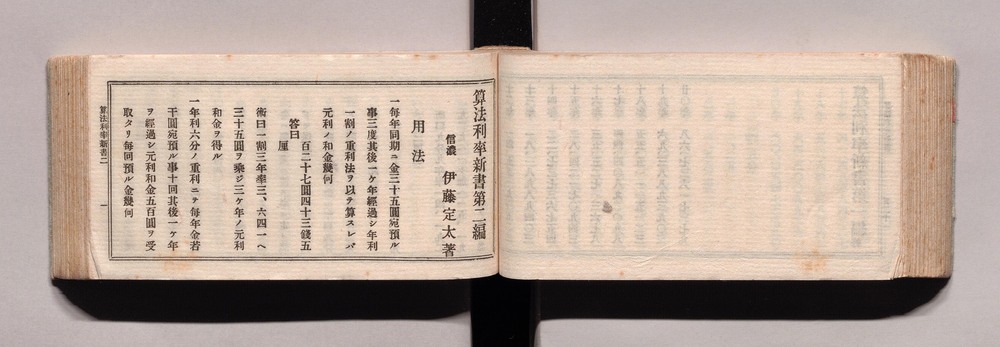 算法利率新書第二編
信濃 伊藤定太著
用法
一毎年同期ニ金三十五圓宛預ル
事三度其後一ケ年經過シ年利
一割ノ重利法ヲ以テ算スレバ
元利ノ和金幾何
答曰 百二十七圓四十三錢五
厘
術曰一割三年率三、六四一ヘ
三十五圓ヲ乘ジ三ケ年ノ元利
和金ヲ得ル
一年利六分ノ重利ニテ毎年金若
干圓宛預ル事十回其後一ケ年
ヲ經過シ元利和金五百圓ヲ受
取タリ毎回預ル金幾何
算法利率新書二
一